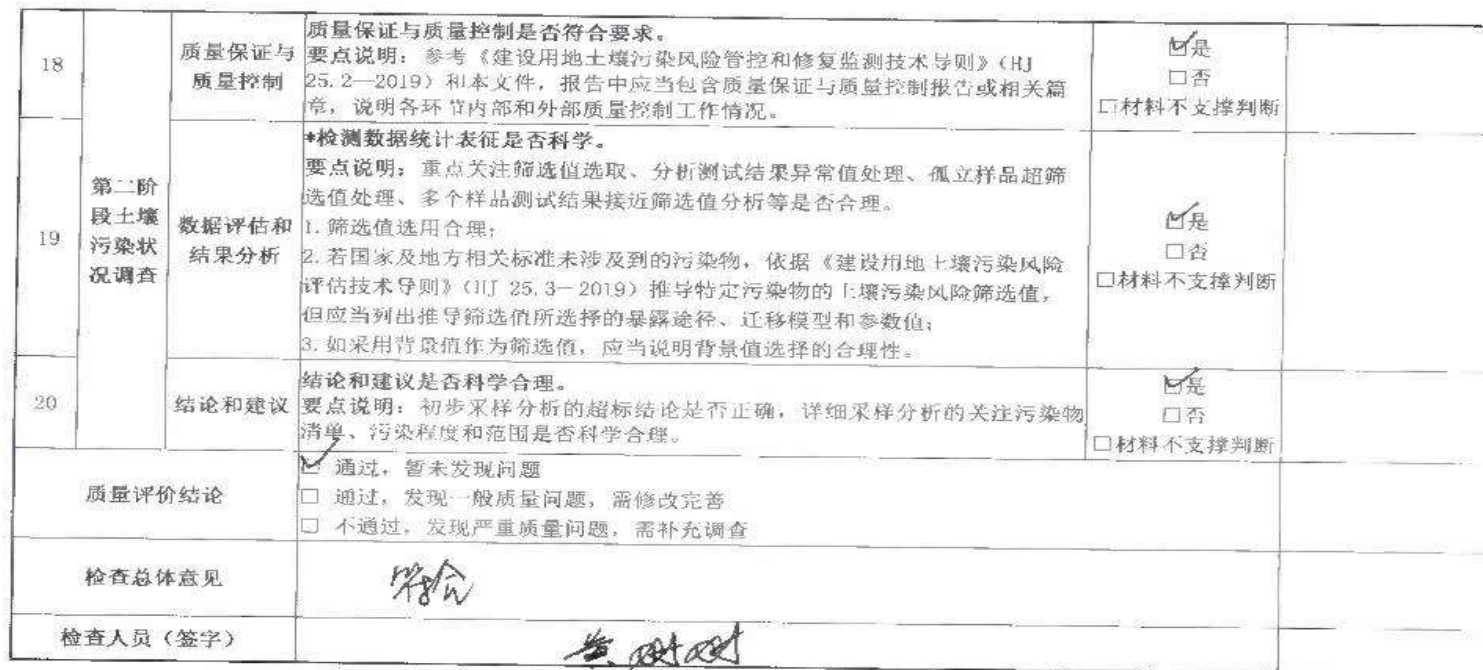 18
质量保证与
质量控制
质量保证与质量控制是否符合要求。
要点说明：参考《建设用地土壤污染风险管控和修复监测技术导则》（HJ
25.2—2019）和本文件，报告中应当包含质量保证与质量控制报告或相关篇
章，说明各环节内部和外部质量控制工作情况。
☑是
□否
□材料不支撑判断
第二阶
段土壤
污染状
况调查
19
数据评估和
结果分析
*检测数据统计表征是否科学。
要点说明：重点关注筛选值选取、分析测试结果异常值处理、孤立样品超筛
选值处理、多个样品测试结果接近筛选值分析等是否合理。
1.筛选值选用合理；
2.若国家及地方相关标准未涉及到的污染物，依据《建设用地土壤污染风险
评估技术导则》（HJ 25.3—2019）推导特定污染物的土壤污染风险筛选值，
但应当列出推导筛选值所选择的暴露途径、迁移模型和参数值；
3.如采用背景值作为筛选值，应当说明背景值选择的合理性。
☑是
□否
□材料不支撑判断
20
结论和建议
结论和建议是否科学合理。
要点说明：初步采样分析的超标结论是否正确，详细采样分析的关注污染物
清单、污染程度和范围是否科学合理。
☑是
□否
□材料不支撑判断
质量评价结论
☑ 通过，暂未发现问题
□ 通过，发现一般质量问题，需修改完善
□ 不通过，发现严重质量问题，需补充调查
检查总体意见
符合
检查人员（签字）